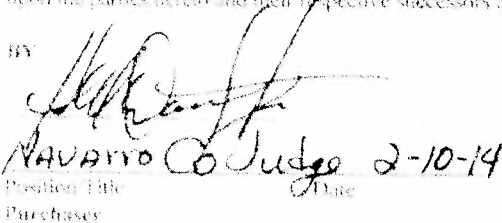 upon the parties hereto and their respective successors
BY
NAVARRO Co Judge 2-10-14
Position Title Date
Purchaser